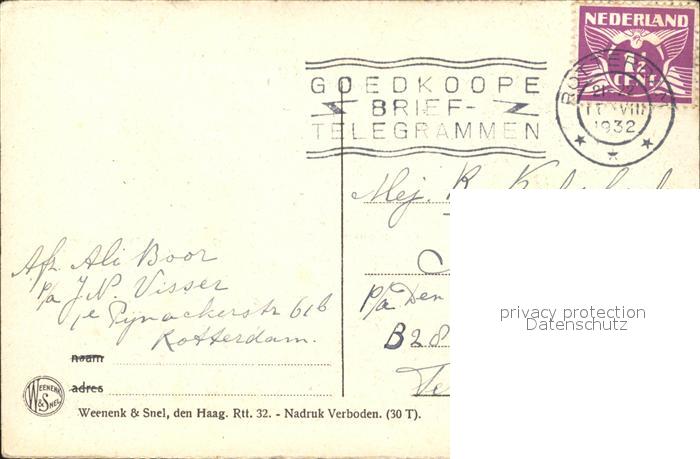 NEDERLAND
CENT
ROTTERDAM
VIII
1932
GOEDKOOPE
BRIEF-
TELEGRAMMEN
Mej.
Afz. Ali Boor
p/a J.N. Visser
1e Pijnackerstr 61b
Rotterdam.
p/a Den
B28
naam
adres
WEENENK
& SNEL
Weenenk & Snel, den Haag. Rtt. 32. - Nadruk Verboden. (30 T).
privacy protection
Datenschutz